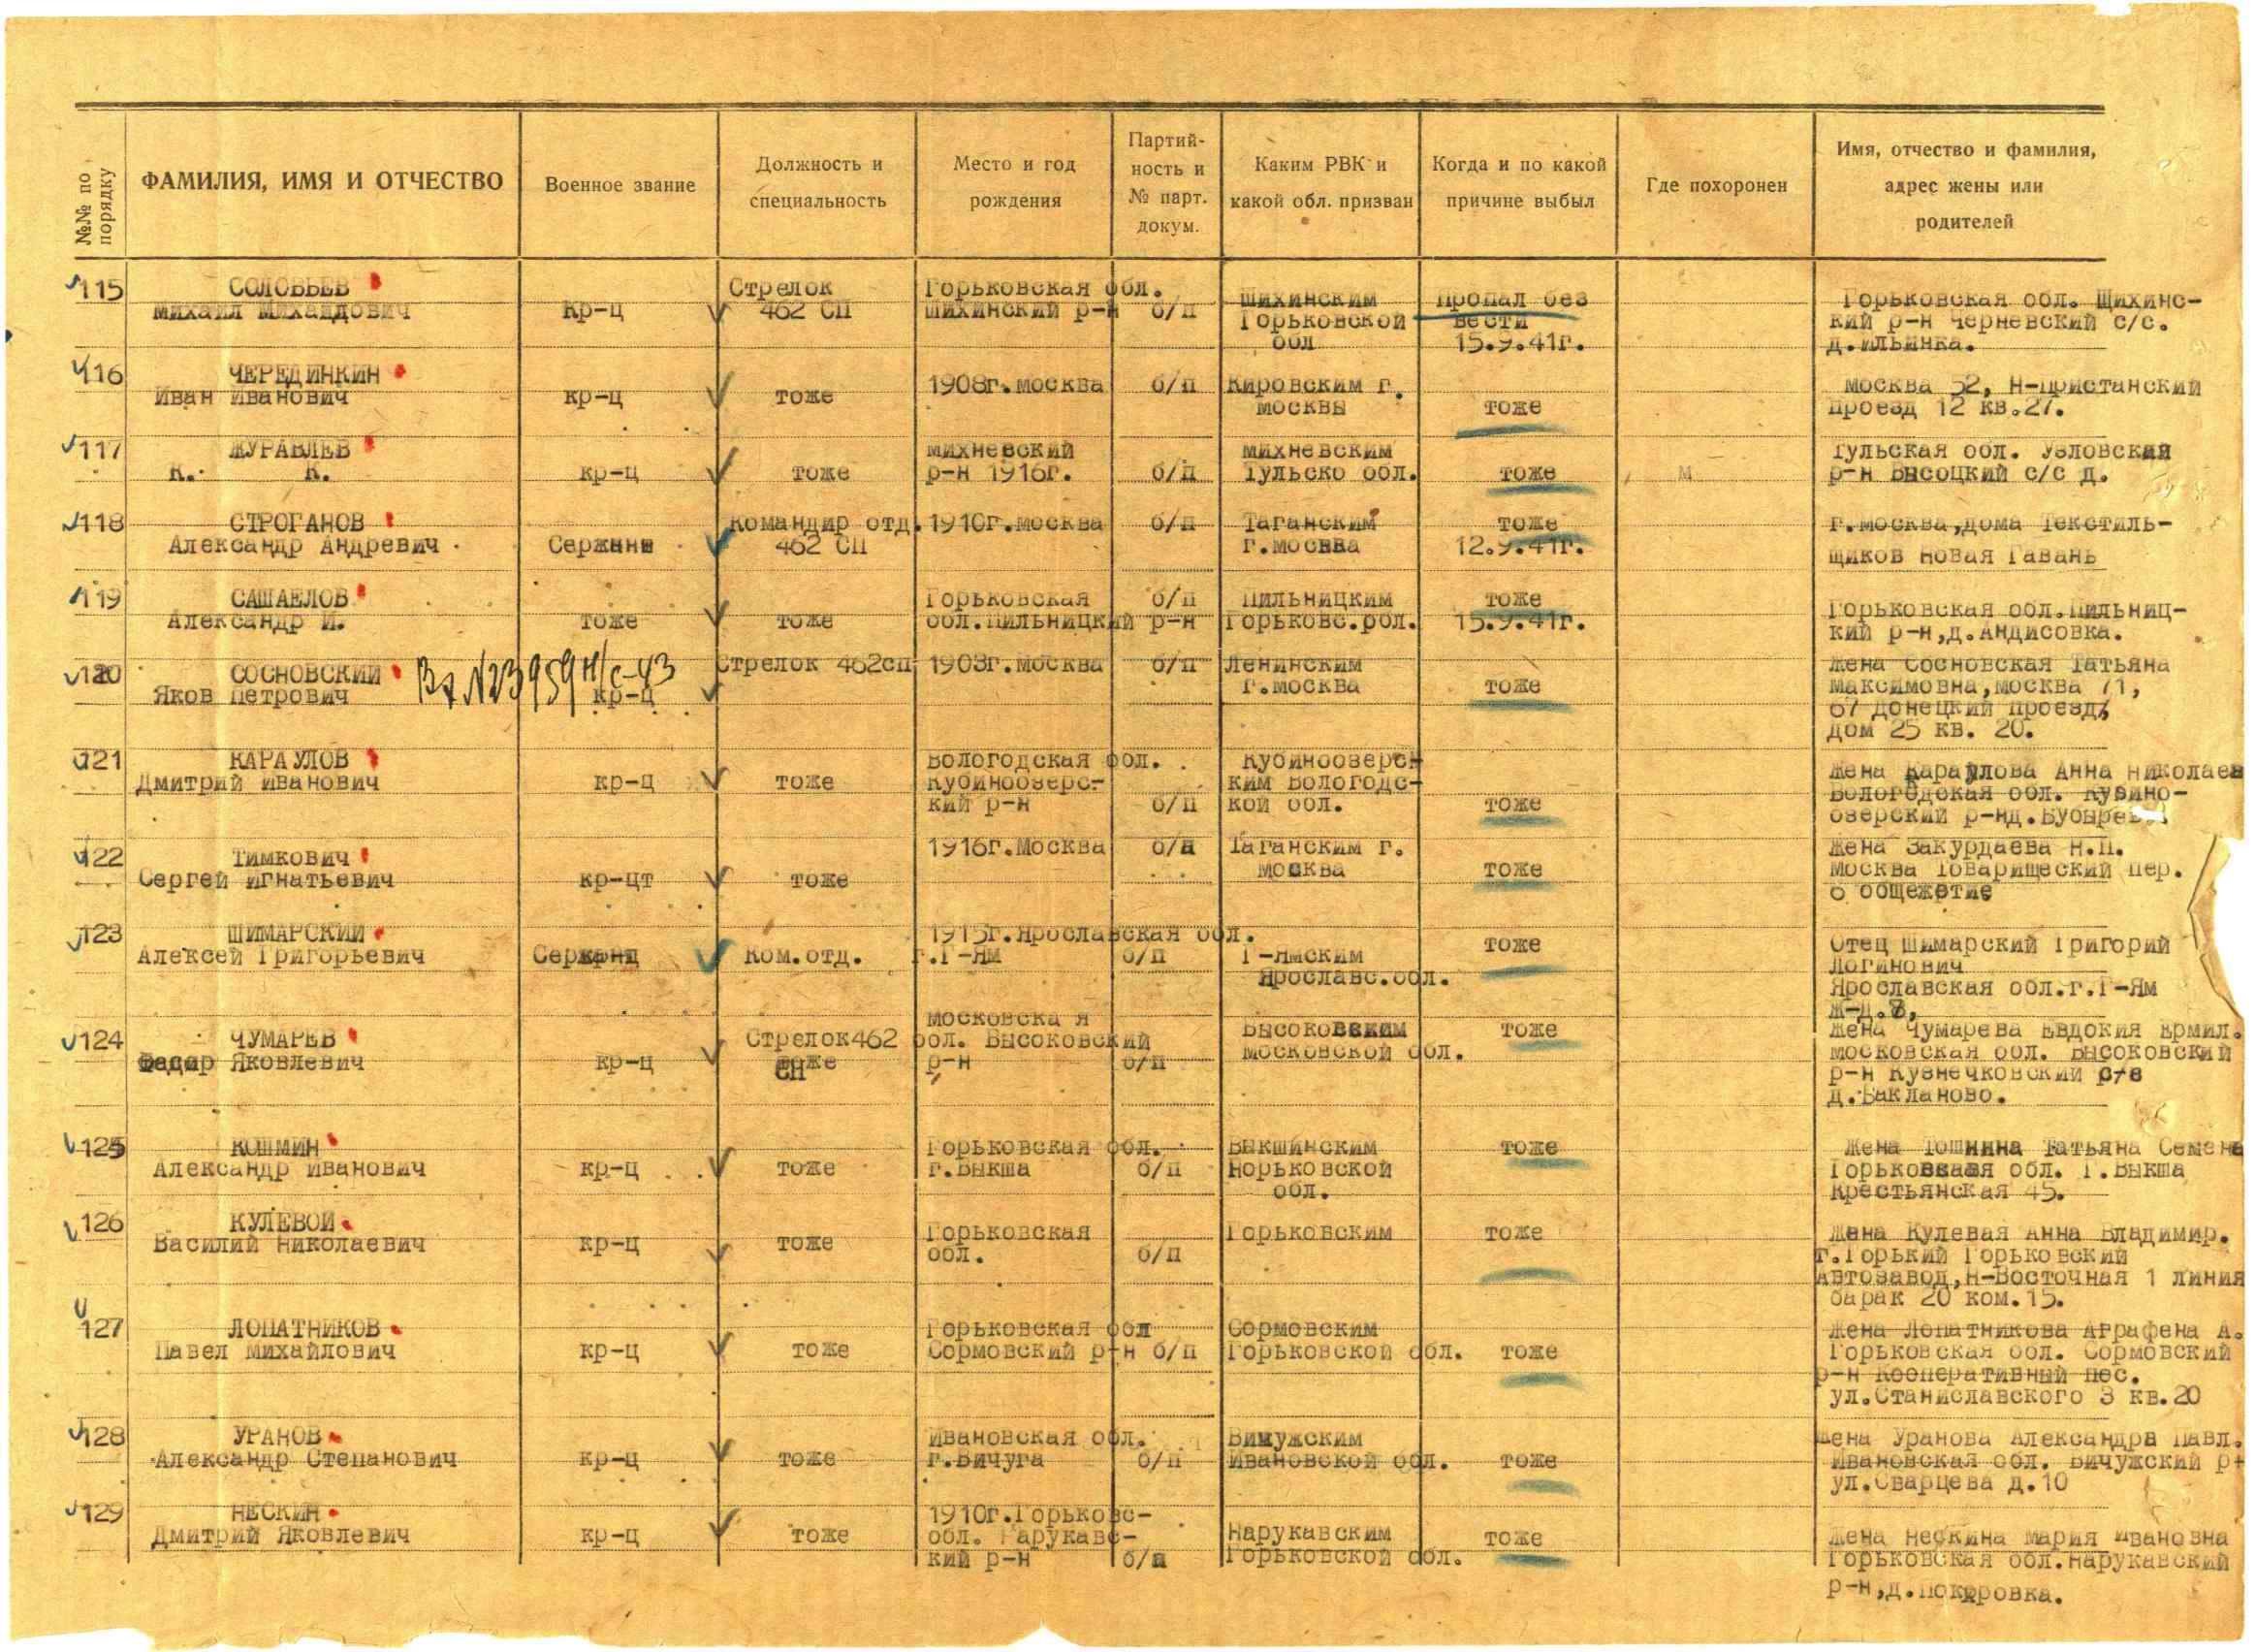 №№ по порядку
ФАМИЛИЯ, ИМЯ И ОТЧЕСТВО
Военное звание
Должность и специальность
Место и год рождения
Партийность и № парт. докум.
Каким РВК и какой обл. призван
Когда и по какой причине выбыл
Где похоронен
Имя, отчество и фамилия, адрес жены или родителей
115 СОЛОВЬЕВ Стрелок Горьковская обл. Шихинским Пропал без Горьковская обл. Шихинс-
Михаил Михайлович Кр-ц 462 СП Шихинский р-н б/п Горьковской вести кий р-н Черневский с/с.
обл 15.9.41г. д.Ильинка.
116 ЧЕРЕДИНКИН 1908г.Москва б/п Кировским г. Москва 52, Н-Пристанский
Иван Иванович кр-ц тоже Москвы тоже проезд 12 кв.27.
117 ЖУРАВЛЕВ Михневский Михневским Тульская обл. Узловский
К. К. кр-ц тоже р-н 1916г. б/п Тульско обл. тоже р-н Высоцкий с/с д.
118 СТРОГАНОВ Командир отд. 1910г.Москва б/п Таганским тоже г.Москва,дома Текстиль-
Александр Андревич Сержант 462 СП г.Москва 12.9.41г. щиков Новая Гавань
119 САШАЕЛОВ Горьковская б/п Пильницким тоже Горьковская обл.Пильниц-
Александр И. тоже тоже обл.Пильницкий р-н Горьковс.рол. 15.9.41г. кий р-н,д.Андисовка.
120 СОСНОВСКИЙ Стрелок 462сп 1903г.Москва б/п Ленинским Жена Сосновская Татьяна
Яков Петрович кр-ц г.Москва тоже Максимовна,Москва 71,
67 Донецкий проезд,
дом 25 кв. 20.
121 КАРАУЛОВ Вологодская обл. Кубиноозерс Жена Караулова Анна Николаев
Дмитрий Иванович кр-ц тоже Кубиноозерс- ким Вологодс- Вологодская обл. Кубино-
кий р-н б/п кой обл. тоже озерский р-нд.Бубырев
122 ТИМКОВИЧ 1916г.Москва б/п Таганским г. Жена Закурдаева Н.П.
Сергей Игнатьевич кр-цт тоже Москва тоже Москва Товарищеский пер.
6 общежетие
123 ШИМАРСКИЙ 1915г.Ярославская обл. тоже Отец Шимарский Григорий
Алексей Григорьевич Сержант Ком.отд. г.Г-Ям б/п Г-Ямским Логинович
Ярославс.обл. Ярославская обл.г.Г-Ям
ж-д.8,
124 ЧУМАРЕВ Стрелок462 Московска я Высоковским тоже Жена Чумарева Евдокия Ермил.
Федор Яковлевич кр-ц СП обл. Высоковский р-н б/п Московской обл. Московская обл. Высоковский
р-н Кузнечковский с/с
д.Бакланово.
125 КОШМИН Горьковская обл. Выкшинским тоже Жена Тошнина Татьяна Семена
Александр Иванович кр-ц тоже г.Выкша б/п Норьковской Горьковская обл. Г.Выкша
обл. Крестьянская 45.
126 КУЛЕВОЙ Горьковская Горьковским тоже Жена Кулевая Анна Владимир.
Василий Николаевич кр-ц тоже обл. б/п г.Горький Горьковский
Автозавод,Н-Восточная 1 линия
барак 20 ком.15.
127 ЛОПАТНИКОВ Горьковская обл Сормовским Жена Лопатникова Аграфена А.
Павел Михайлович кр-ц тоже Сормовский р-н б/п Горьковской обл. тоже Горьковская обл. Сормовский
р-н Кооперативный пес.
ул.Станиславского 3 кв.20
128 УРАНОВ Ивановская обл. Вичужским Жена Уранова Александра Павл.
Александр Степанович кр-ц тоже г.Вичуга б/п Ивановской обл. тоже Ивановская обл. Вичужский р-
ул.Сварцева д.10
129 НЕСКИН 1910г.Горьковс- Нарукавским тоже Жена Нескина Мария Ивановна
Дмитрий Яковлевич кр-ц тоже обл. Нарукавс- Горьковской обл. Горьковская обл.Нарукавский
кий р-н б/п р-н,д.Покровка.